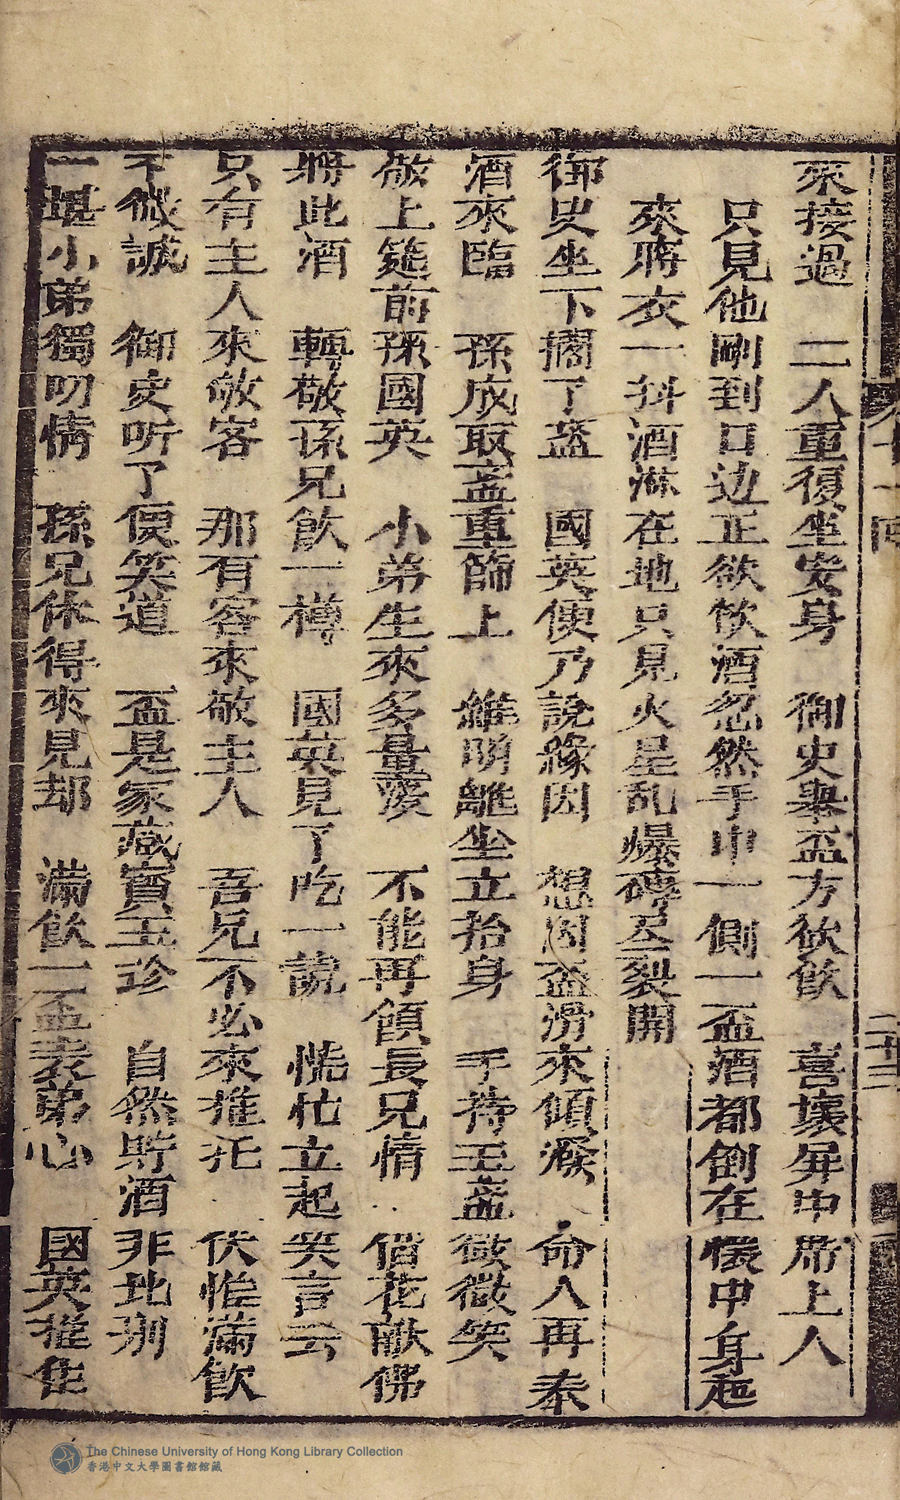 來接過　二人重復坐安身　御史舉盃方欲飲　喜壞屏中席上人
只見他剛到口边正欲飲酒忽然手中一側一盃酒都倒在懷中身起
來將衣一抖酒淋在地只見火星乱爆磚尽裂開
御史坐下擱了盞　國英便乃說緣因　想因盃滑來傾潑　命人再奉
酒來臨　孫成取盞重篩上　維明離坐立抬身　手持玉盞微微笑
敬上筵前孫國英　小弟生來多量淺　不能再領長兄情　借花献佛
將此酒　轉敬孫兄飲一樽　國英見了吃一驚　慌忙立起笑言云
只有主人來敬客　那有客來敬主人　吾兄不必來推托　伏惟滿飲
千微誠　御史听了便笑道　盃是家藏寶玉珍　自然貯酒非比別
一堪小弟獨叨情　孫兄休得來見却　滿飲一盃表弟心　國英推隹
二十三
The Chinese University of Hong Kong Library Collection
香港中文大學圖書館館藏